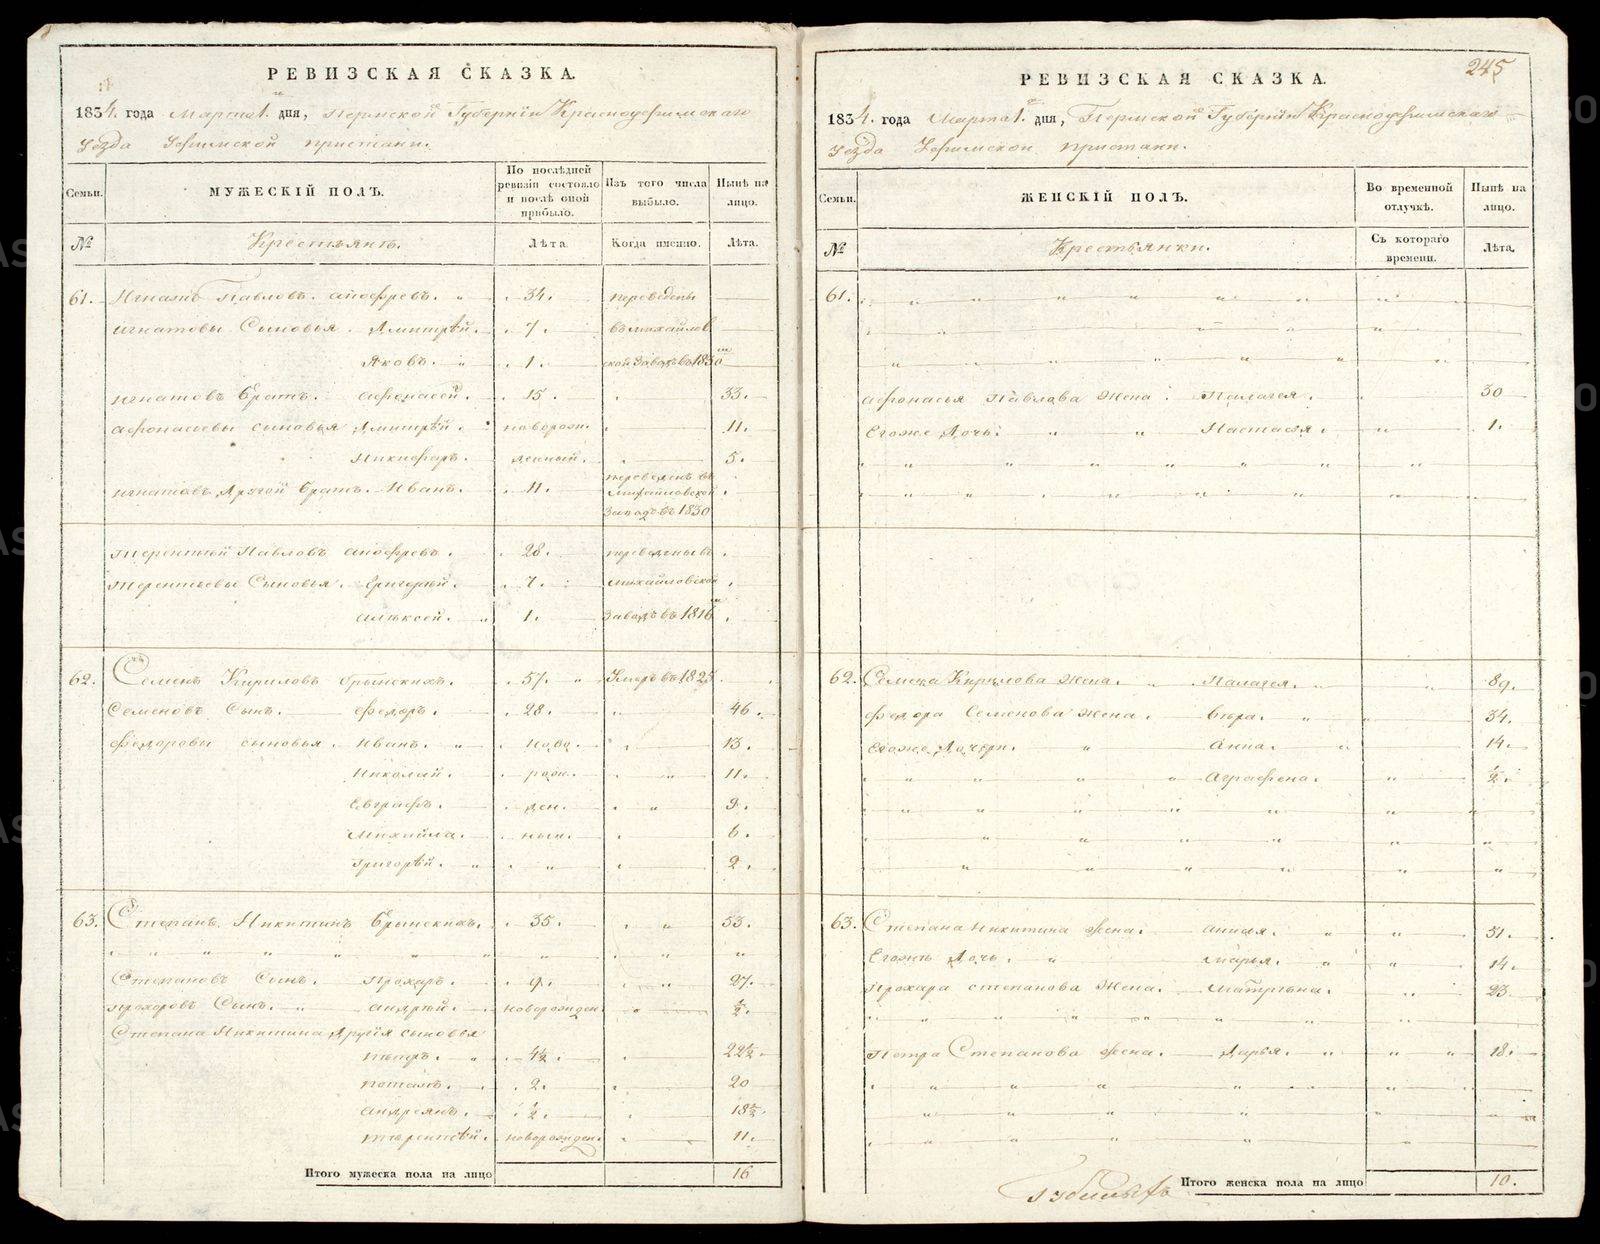 РЕВИЗСКАЯ СКАЗКА.
1834. года Марта 1. дня, Пермской Губернiи Красноуфимскаго
Уѣзда Уфимской пристани.
Семьи.
МУЖЕСКIЙ ПОЛЪ.
По послѣдней ревизiи состояло и послѣ оной прибыло.
Изъ того числа выбыло.
Нынѣ на лицо.
№
Крестьянъ.
Лѣта.
Когда именно.
Лѣта.
61. Игнатъ Павловъ 34. переведены
Игнатовы Сыновья. Дмитрѣй. 7. въ михайлов
Яковъ. 1. ской Заводъ въ 1830
Игнатовъ Братъ. Афонасей. 15. 33.
Афонасьевы сыновья Дмитрѣй. новорож. 11.
Никифоръ. денный. 5.
Игнатовъ Другой Братъ. Иванъ. 11. переведенъ въ
Михайловской
Заводъ въ 1830
Терентѣй Павловъ 28. переведены въ
Терентьевы Сыновья. Григорѣй. 7. михайловской
Алексей. 1. Заводъ въ 1816
62. Семенъ Кириловъ 57. Умеръ въ 1825
Семеновъ Сынъ. Федоръ. 28. 46.
Федоровы сыновья. Иванъ. ново. 13.
Николай. рож. 11.
Евграфъ. ден. 9.
Михайла. ныя. 6.
Григорѣй. 2.
63. Степанъ Никитинъ Брынскихъ. 35. 53.
Степановъ Сынъ. Прохоръ. 9. 27.
Прохоровъ Сынъ. Андрѣй. новорожден. ½.
Степана Никитина Другiя сыновья
Петръ. 4½. 22½.
Потапъ. 2. 20
Андреянъ. ½. 18½.
Терентѣй. новорожден. 11.
Итого мужеска пола на лицо 16
245
РЕВИЗСКАЯ СКАЗКА.
1834. года Марта 1. дня, Пермской Губернiи Красноуфимскаго
Уѣзда Уфимской пристани.
Семьи.
ЖЕНСКIЙ ПОЛЪ.
Во временной отлучкѣ.
Нынѣ на лицо.
№
Крестьянки.
Съ котораго времени.
Лѣта.
61.
Афонасья Павлова Жена. Палагея. 30
Егоже Дочь. Настасья. 1.
62. Семена Кирилова Жена. Палагея. 89.
Федора Семенова Жена. Вѣра. 34.
Егоже Дочери. Анна. 14.
Аграфена. ½.
63. Степана Никитина Жена. 51.
Егоже Дочь. Марья. 14.
Прохара степанова Жена. Матрѣна. 23
Петра Степанова Жена. Дарья. 18.
Итого женска пола на лицо 10.